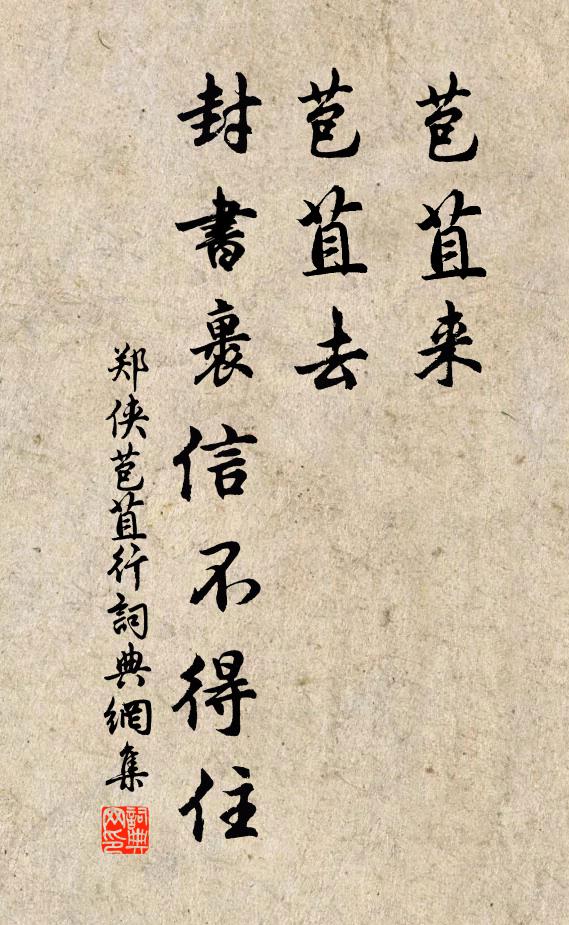 苞苴来
苞苴去
封書裹信不得住
郑侠苞苴行詞典網集
詞典网印